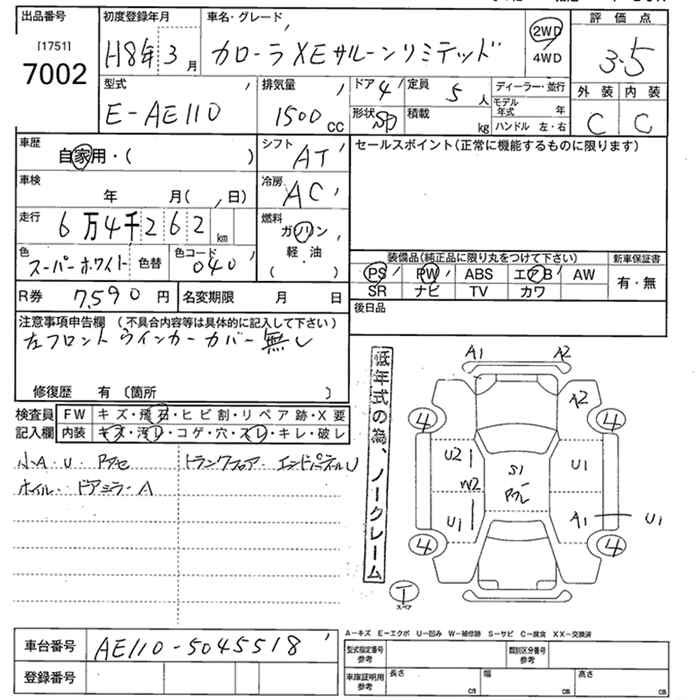 出品番号 初度登録年月 車名・グレード 評価点
[1751]
7002
H8年3月
カローラ XEサルーンリミテッド
2WD
4WD
3.5
外装 内装
C C
型式 排気量 ドア 定員 ディーラー・並行
E-AE110 1500cc 4 5人
形状 積載 kg モデル年式 年
ハンドル 左・右
車歴 自家用・( ) シフト AT
セールスポイント(正常に機能するものに限ります)
車検 年 月( , 日) 冷房 AC
走行 6万4千262km 燃料 ガソリン
軽・油
( )
色 スーパーホワイト 色替 色コード 040
装備品(純正品に限り丸をつけて下さい) 新車保証書
PS PW ABS エアB AW 有・無
SR ナビ TV カワ
R券 7,590円 名変期限 月 日
後日品
注意事項申告欄 (不具合内容等は具体的に記入して下さい)
左フロント ウインカーカバー無し
修復歴 有 〔箇所 〕
検査員 FW キズ・飛石・ヒビ割・リペア跡・X要
記入欄 内装 キズ・汚レ・コゲ・穴・スレ・キレ・破レ
小A・U
ホイル・ドアミラーA
トランクフロア・エンドパネルU
低年式の為、ノークレーム
A1 A2
A2
4 4
U2 S1 U1
W2
U1 A1 U1
4 4
T
スペア
A-キズ E-エクボ U-凹み W-補修跡 S-サビ C-腐食 XX-交換済
車台番号 AE110-5045518
型式指定番号 参考 類別区分番号 参考
登録番号
車庫証明用 参考 長さ cm 幅 cm 高さ cm